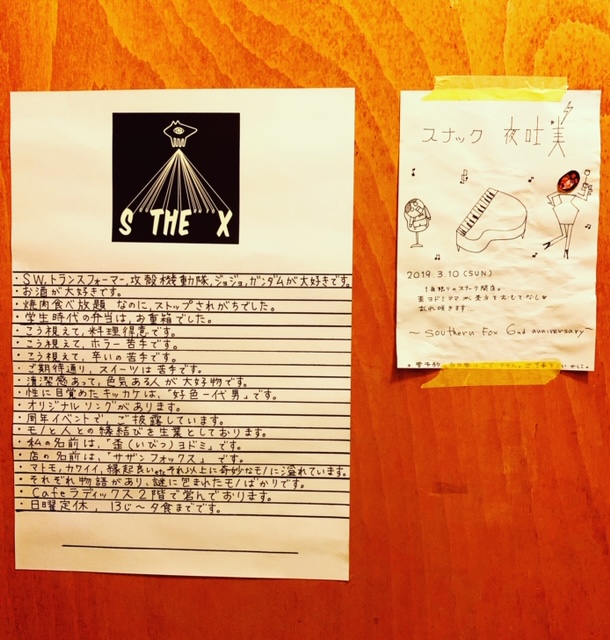 S THE X
・SW、トランスフォーマー、攻殻機動隊、ジョジョ、ガンダムが大好きです。
お酒が大好きです。
・焼肉食べ放題 なのに、ストップされがちでした。
・学生時代の弁当は、お重箱でした。
・こう視えて、料理得意です。
・こう視えて、ホラー苦手です。
・こう視えて、辛いの苦手です。
・ご期待通り、スイーツは苦手です。
・清潔感あって、色気ある人が大好物です。
・性に目覚めたキッカケは、「好色一代男」です。
・オリジナルソングがあります。
・周年イベントで、ご披露しています。
・モノと人との縁結びを生業としております。
・私の名前は、「歪(いびつ)ヨドミ」です。
・店の名前は、「サザンフォックス」です。
・マトモ、カワイイ、縁起良いetc.それ以上に奇妙なモノに溢れています。
・それぞれ物語があり、謎に包まれたモノばかりです。
・Cafeラディックス2階で営んでおります。
・日曜定休、13じ〜夕食までです。
スナック 夜吐美
2019.3.10(SUN)
1夜限りのスナック開店。
歪ヨドミママが、貴方をおもてなし
乱れ咲きます
〜Southern Fox 2nd anniversary〜